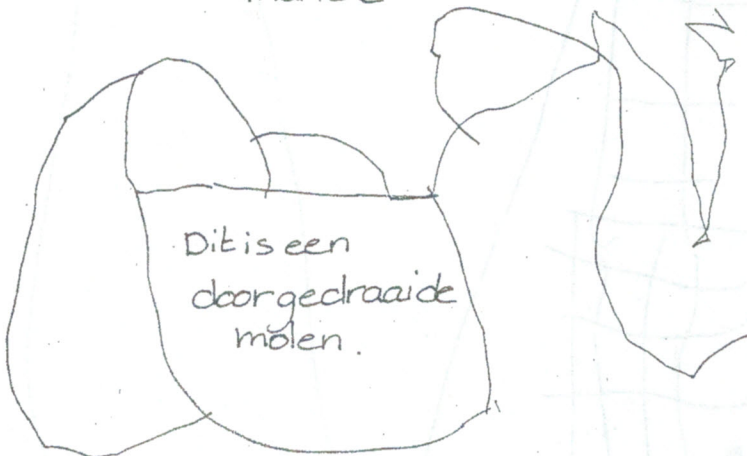 Dit is een
doorgedraaide
molen.